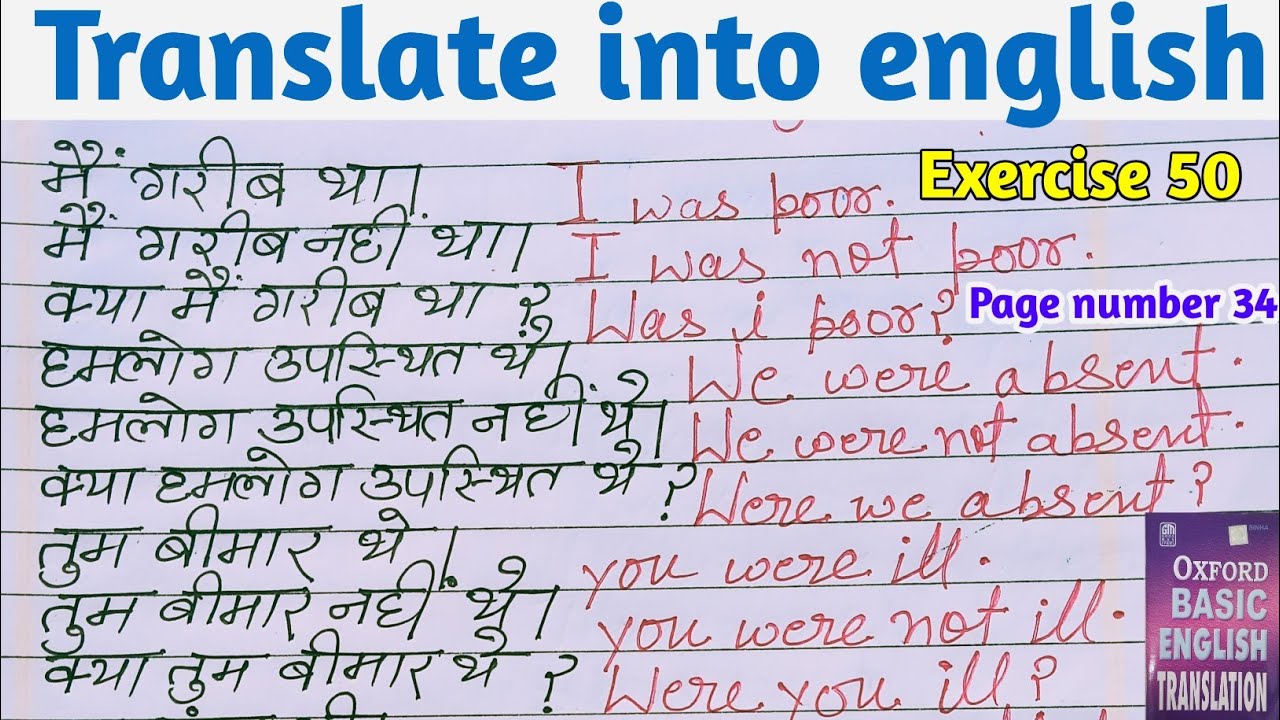 Translate into english
Exercise 50
मैं गरीब था। I was poor.
मैं गरीब नहीं था। I was not poor.
क्या मैं गरीब था ? Was i poor?
Page number 34
हमलोग उपस्थित थे। We were absent.
हमलोग उपस्थित नहीं थे। We were not absent.
क्या हमलोग उपस्थित थे ? Were we absent?
तुम बीमार थे। you were ill.
तुम बीमार नहीं थे। you were not ill.
क्या तुम बीमार थे ? Were you ill?
GM
SINHA
OXFORD
BASIC
ENGLISH
TRANSLATION